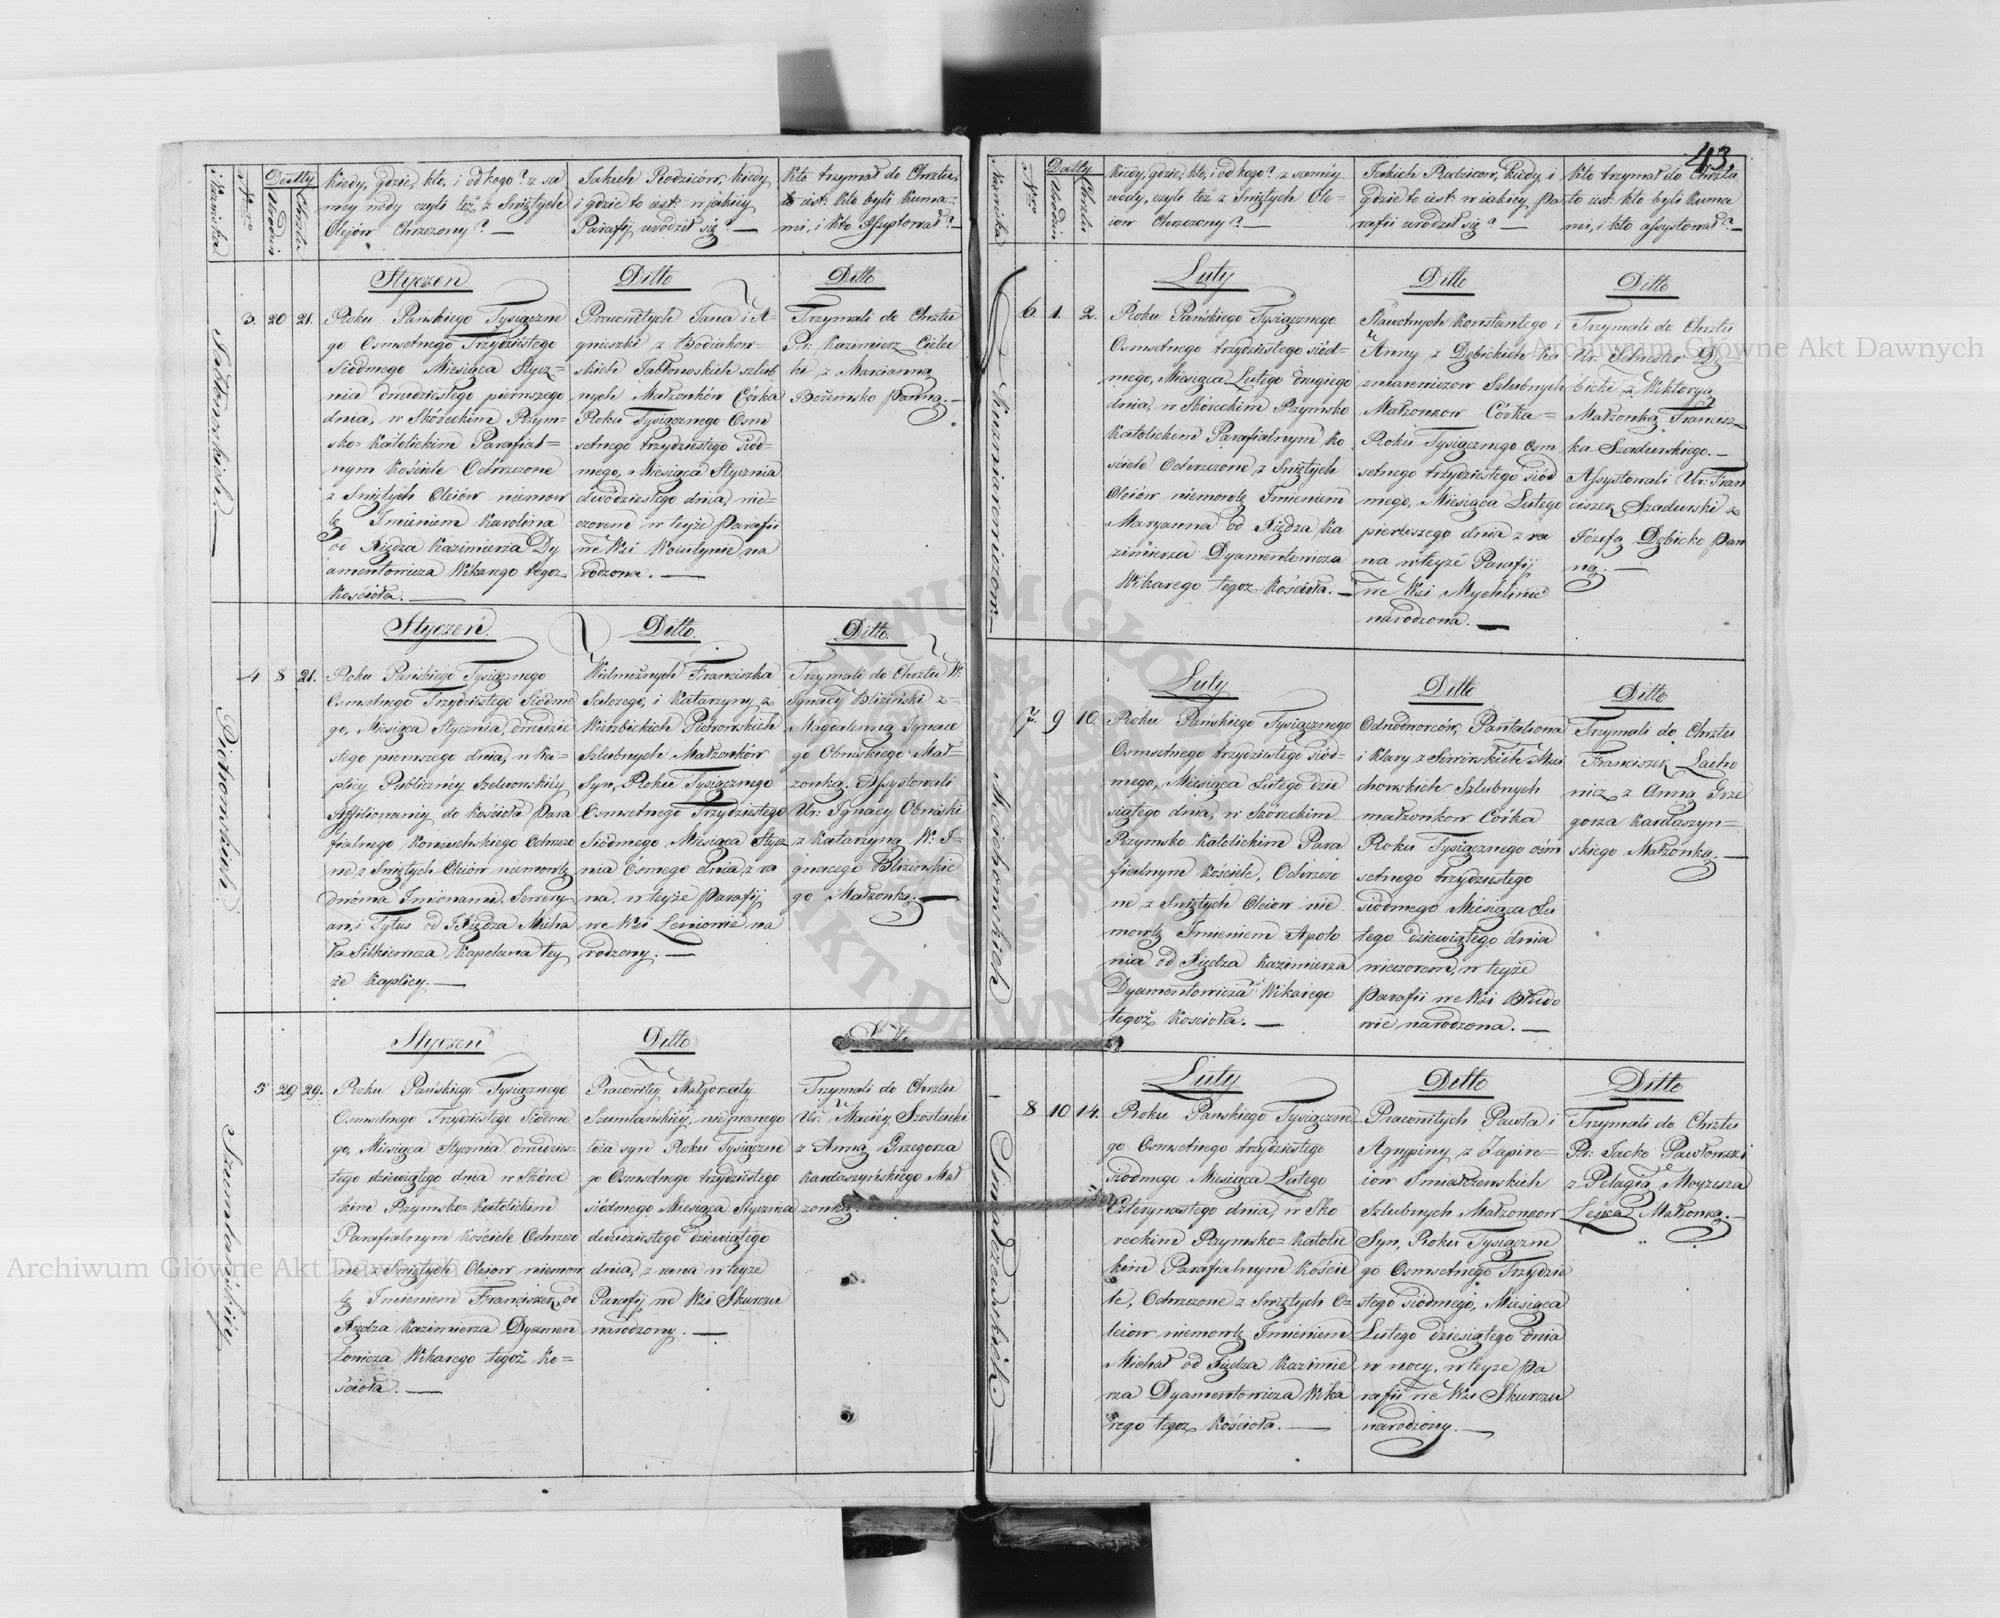 Nazwiska
Nro
Datty
Urodin
Chrztu
Kiedy, gdzie, kto, i od kogo? z sa
mey wody czyli też z Swiętych
Olejów Chrzczony? —
Jakich Rodziców, kiedy
i gdzie to iest: w jakiey
Parafij urodził się? —
Kto trzymał do Chrztu,
to iest: Kto byli Kuma-
mi, i kto Assystował? —
Jabłonskich. —
3.
20
21.
Styczen
Roku Panskiego Tysiączne
go Osmsetnego Trzydziestego
Siódmego Miesiąca Stycz=
nia dwudziestego pierwszego
dnia, w Skóreckim Rzym=
sko-Katolickim Parafial=
nym Kościele Ochrzczone
z Swiętych Oleiów niemow
lę Imieniem Karolina
od Xiędza Kazimierza Dy
amentowicza Wikarego tegoz
Kościoła. —
Ditto
Pracowitych Jana i A-
gnieszki z Bodiakow-
skich Jabłonowskich szlub
nych Małzonków Córka
Roku Tysiącznego Osm
setnego trzydziestego siód-
mego, Miesiąca Stycznia
dwódziestego dnia, wie-
czorem w teyże Parafii
we Wsi na
rodzona. —
Ditto
Trzymali do Chrztu
Pr: Kazimierz Cielec
ki z Marcianną
Bożemsko Panną. —
Piotrowskich.
4
8
21.
Styczeń
Roku Pańskiego Tysiącznego
Osmsetnego Trzydziestego Siódme
go, Miesiąca Stycznia, dwudzie
stego pierwszego dnia, w Ka-
plicy Publiczney Szelwowskiéy
Affiliowaney do Kościoła Para
fialnego Koniuchskiego Ochrzczo
ne z Swiętych Oleiów niemowlę
dwóma Imionami Sewery
an, i Tytus od Xiędza Micha
ła Silkiewicza Kapelana tey
że Kaplicy. —
Ditto
Wielmożnych Franciszka
Salezego, i Katarzyny z
Wierzbickich Piotrowskich
Szlubnych Małzonków
Syn, Roku Tysiącznego
Osmsetnego Trzydziestego
Siódmego Miesiąca Stycz
nia Osmego dnia z ra
na w teyże Parafij
we Wsi Leniowie na
rodzony. —
Ditto.
Trzymali do Chrztu W:
Ignacy Bliziński z-
Magdaleną Ignace
go Małzonką. Assystowali
Ur: Ignacy
z Katarzyną W: I-
gnacego Blizinskie
go Małzonką. —
Szumlańskiéy
5
29
29.
Styczen
Roku Pańskiego Tysiącznego
Osmsetnego Trzydziestego Siódme
go, Miesiąca Stycznia dwudzies-
tego dziewiątego dnia w Skórec
kim Rzymsko-Katolickim
Parafialnym Kościele Ochrzczo
ne z Swiętych Oleiow niemow
lę Imieniem Franciszek od
Xiędza Kazimierza Dyamen
towicza Wikarego tegoż Ko=
ścioła. —
Ditto
Pracowitey Małgorzaty
Szumlańskiéy, nieprawego
łoża syn Roku Tysiączne
go Osmsetnego trzydziestego
siódmego Miesiąca Stycznia
dwudziestego dziewiątego
dnia, z rana w teyże
Parafij we Wsi Skurczu
narodzony. —
Trzymali do Chrztu
Ur: Maciéy Szostacki
z Anną Grzegorza
Kardaszyńskiego Mał
zonką.
43
Nazwiska
Nro
Datty
Urodin
Chrztu
Kiedy, gdzie, kto, i od kogo? z saméy
wody, czyli też z Swiętych Ole-
iow Chrzczony? —
Jakich Rodzicow, Kiedy, i
gdzie to iest: w iakiey, Pa-
rafii urodził się? —
Kto trzymał do Chrztu
to iest: kto byli Kuma
mi, i kto assystował? —
Kuzmianowiczow. —
6.
1.
2.
Luty
Roku Pańskiego Tysiącznego
Osmsetnego trzydziestego siód-
mego, Miesiąca Lutego drugiego
dnia, w Skóreckim Rzymsko
Katolickim Parafialnym Ko
ściele Ochrzczone z Swiętych
Oleiów niemowlę Imieniem
Maryanna od Xiędza Ka
zimierza Dyamentowicza
Wikarego tegoz Kościoła. —
Ditto
Sławetnych Konstantego i
Anny z Dębickich Ku
zmiarowiczow Szlubnych
Małzonkow Córka=
Roku Tysiącznego Osm
setnego trzydziestego siód
mego, Miesiąca Lutego
pierwszego dnia z ra
na w teyze Parafij
we Wsi Mychlinie
narodzona. —
Ditto
Trzymali do Chrztu
Ur: Silwester Dę
bicki z Wiktoryą
Małzonką Francisz-
ka Szadurskiego. —
Assystowali Ur: Fran
ciszek Szadurski z
Józefą Dębicko Pan
ną. —
Michowskich
7.
9
10.
Luty
Roku Panskiego Tysiącznego
Osmsetnego trzydziestego siód-
mego, Miesiąca Lutego dzie
siątego dnia, w Skóreckim
Rzymsko Katolickim Para
fialnym Kosciele, Ochrzczo
ne z Swiętych Oleiow nie
mowlę Imieniem Apolo
nia od Xiędza Kazimierza
Dyamentowicza Wikarego
tegoż Koscioła. —
Ditto
Odnodworców, Pantaliona
i Klary z
chowskich Szlubnych
małzonkow Córka
Roku Tysiącznego ósm
setnego trzydziestego
siódmego Miesiąca Lu
tego dziewiątego dnia
wieczorem, w teyże
Parafii we Wsi Błudo
wie narodzona. —
Ditto
Trzymali do Chrztu
Franciszek Lacho
wicz z Anną Grze
gorza Kardaszyn=
skiego Małzonką. —
Smiałczewskich —
8
10
14.
Luty
Roku Panskiego Tysiączne
go Osmsetnego trzydziestego
siódmego Miesiąca Lutego
Czterynastego dnia, w Sko
reckim Rzymsko-Katolic
kim Parafialnym Koście
le, Ochrzczone z Swiętych O=
leiow niemowlę Imieniem
Michał od Xiędza Kazimie
rza Dyamentowicza, Wika
rego tegoz Kościoła. —
Ditto
Pracowitych Pawła i
Agrypiny z
iow Smiałczewskich
Szlubnych Małzonkow
Syn, Roku Tysiączne
go Osmsetnego Trzydzie
stego siódmego, Miesiąca
Lutego dziesiątego dnia
w nocy, w teyze Pa
rafii we Wsi Skurczu
narodzony. —
Ditto
Trzymali do Chrztu
Pr: Jacko Pawłowski
z Pelagią Moyzesza
Małzonką. —
Archiwum Główne Akt Dawnych
Archiwum Główne Akt Dawnych